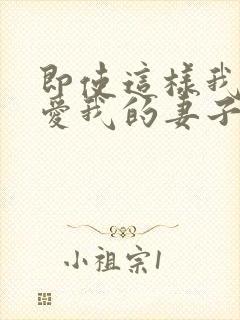 即使這樣我
愛我的妻子
小祖宗1